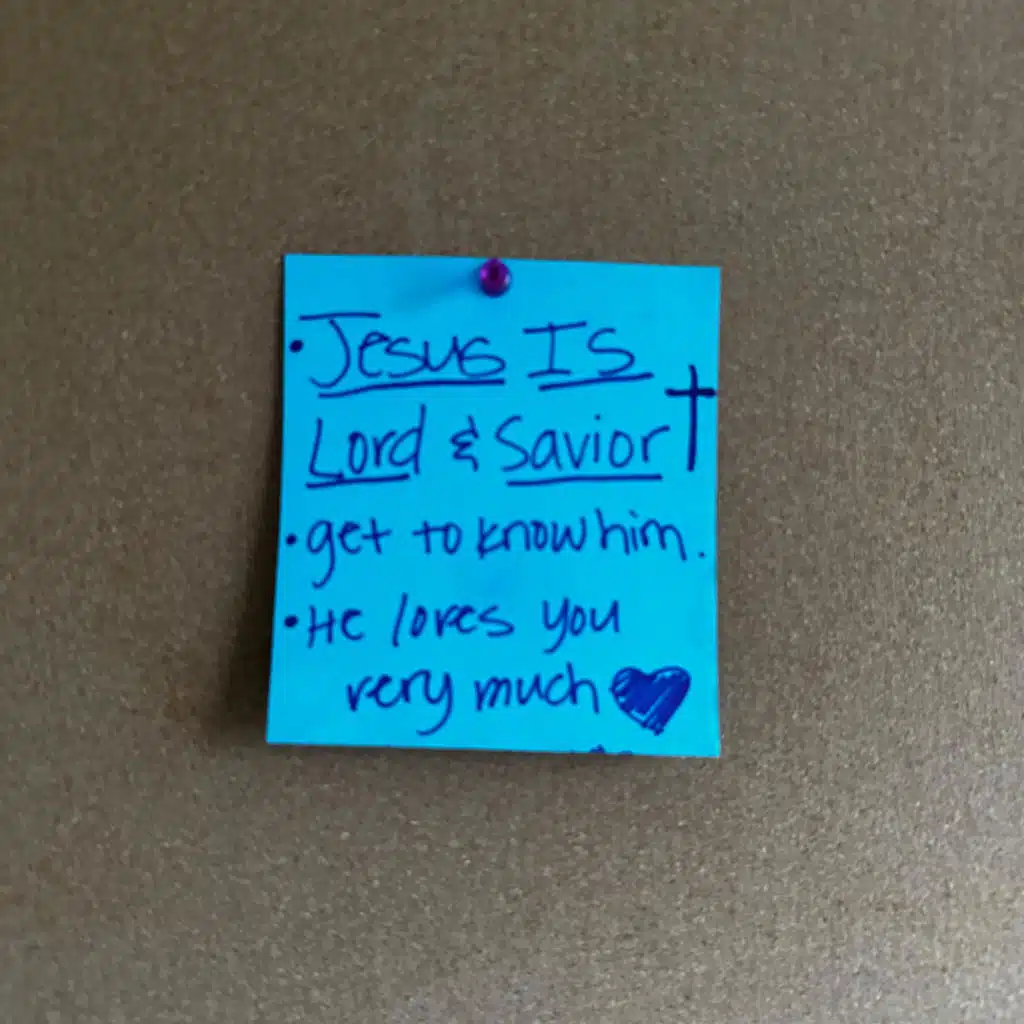 • Jesus Is
Lord & Savior
• get to know him.
• He loves you
very much